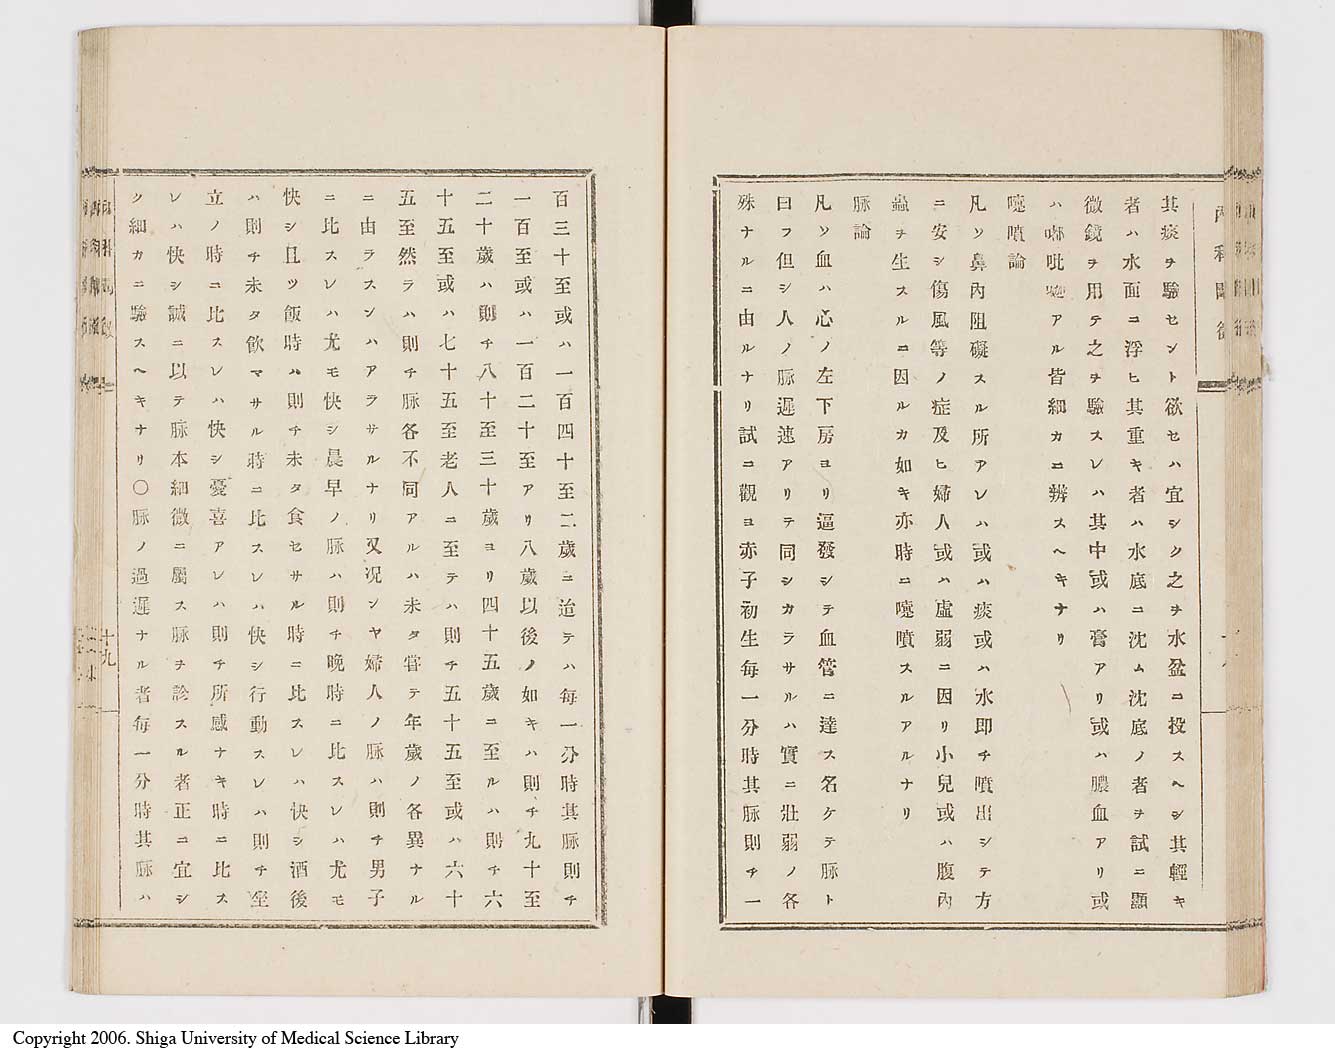 其痰ヲ驗セント欲セハ宜シク之ヲ水盆ニ投スヘシ其輕キ
者ハ水面ニ浮ヒ其重キ者ハ水底ニ沈ム沈底ノ者ヲ試ニ顯
微鏡ヲ用テ之ヲ驗スレハ其中或ハ膏アリ或ハ膿血アリ或
ハ嘶吡アル皆細カニ辨スヘキナリ
嚔噴論
凡ソ鼻內阻礙スル所アレハ或ハ痰或ハ水即チ噴出シテ方
ニ安シ傷風等ノ症及ヒ婦人或ハ虛弱ニ因リ小兒或ハ腹內
蟲ヲ生スルニ因ルカ如キ亦時ニ嚔噴スルアルナリ
脉論
凡ソ血ハ心ノ左下房ヨリ逼發シテ血管ニ達ス名ケテ脉ト
曰フ但シ人ノ脉遲速アリテ同シカラサルハ實ニ壯弱ノ各
殊ナルニ由ルナリ試ニ觀ヨ赤子初生每一分時其脉則チ一
百三十至或ハ一百四十至二歲ニ迨テハ每一分時其脉則チ
一百至或ハ一百二十至アリ八歲以後ノ如キハ則チ九十至
二十歲ハ則チ八十至三十歲ヨリ四十五歲ニ至ルハ則チ六
十五至或ハ七十五至老人ニ至テハ則チ五十五至或ハ六十
五至然ラハ則チ脉各不同アルハ未タ嘗テ年歲ノ各異ナル
ニ由ラスンハアラサルナリ又况ンヤ婦人ノ脉ハ則チ男子
ニ比スレハ尤モ快シ晨早ノ脉ハ則チ晚時ニ比スレハ尤モ
快シ且ツ飯時ハ則チ未タ食セサル時ニ比スレハ快シ酒後
ハ則チ未タ飲マサル時ニ比スレハ快シ行動スレハ則チ坐
立ノ時ニ比スレハ快シ憂喜アレハ則チ所感ナキ時ニ比ス
レハ快シ誠ニ以テ脉本細微ニ屬ス脉ヲ診スル者正ニ宜シ
ク細カニ驗スヘキナリ〇脉ノ過遲ナル者每一分時其脉ハ
十九
Copyright 2006. Shiga University of Medical Science Library